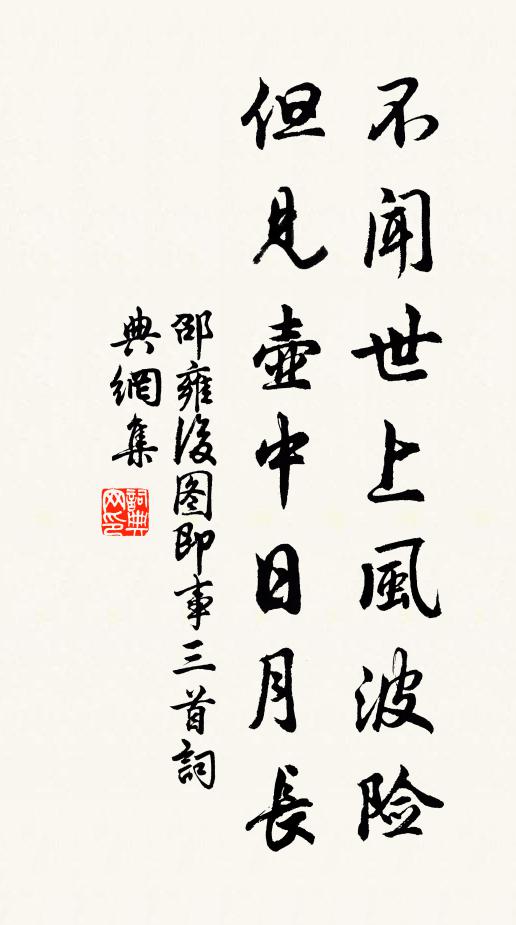 不聞世上風波险
但見壺中日月長
邵雍後图即事三首詞
典網集
詞典网印